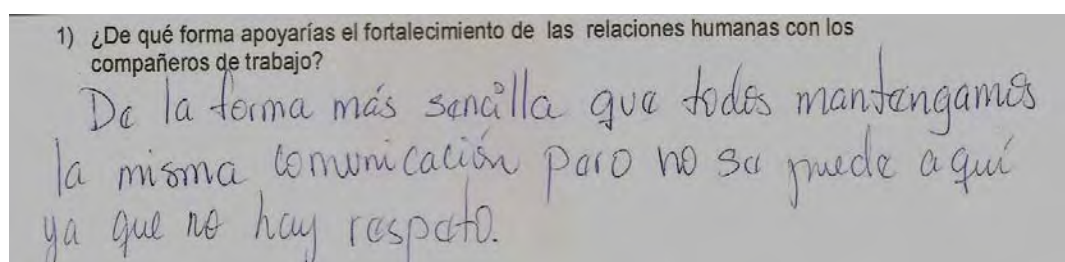 1) ¿De qué forma apoyarías el fortalecimiento de las relaciones humanas con los
compañeros de trabajo?
De la forma más sencilla que todos mantengamos
la misma comunicación pero no se puede aquí
ya que no hay respeto.